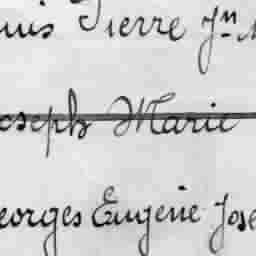 uis Pierre Jn M
oseph Marie
eorges Eugène Jose